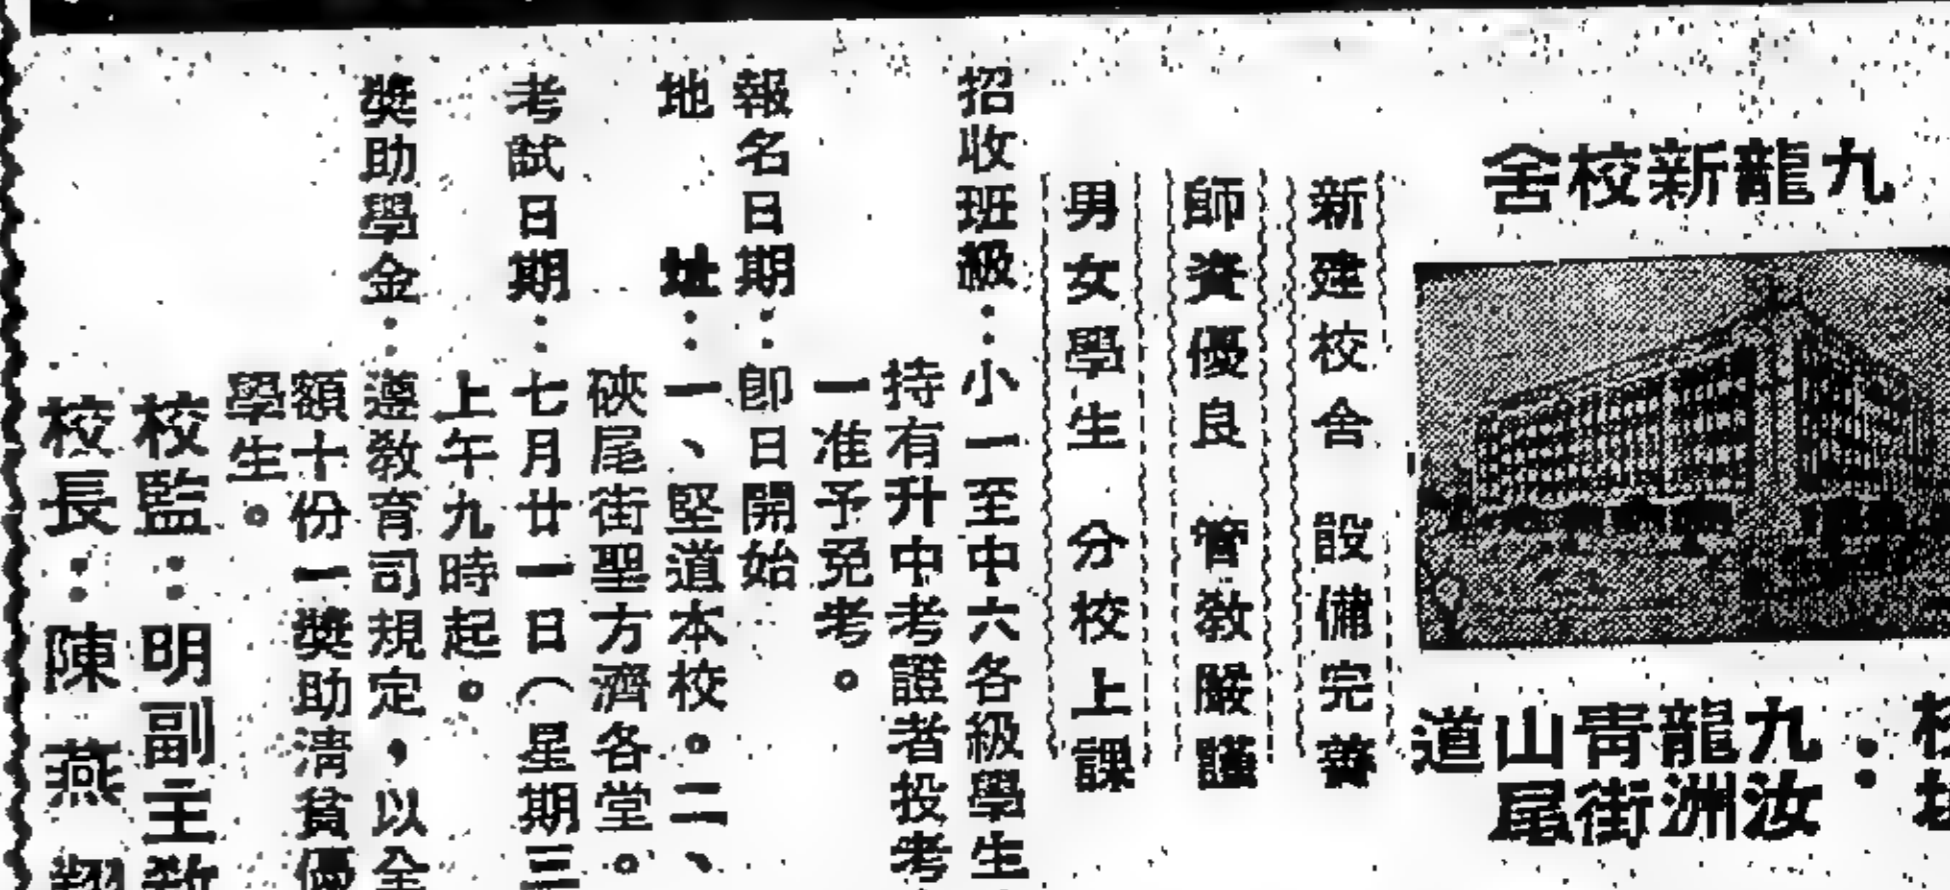 九龍新校舍
九龍青山道
汝洲街尾
新建校舍 設備完善
師資優良 管教嚴謹
男女學生 分校上課
招收班級：小一至中六各級學生
持有升中考證者投考
一准予免考。
報名日期：即日開始
地址：一、堅道本校。二、
硤尾街聖方濟各堂。
考試日期：七月廿一日（星期三
上午九時起。
獎助學金：遵教育司規定，以全
額十份一獎助清貧優
學生。
校監：明副主教
校長：陳燕翔